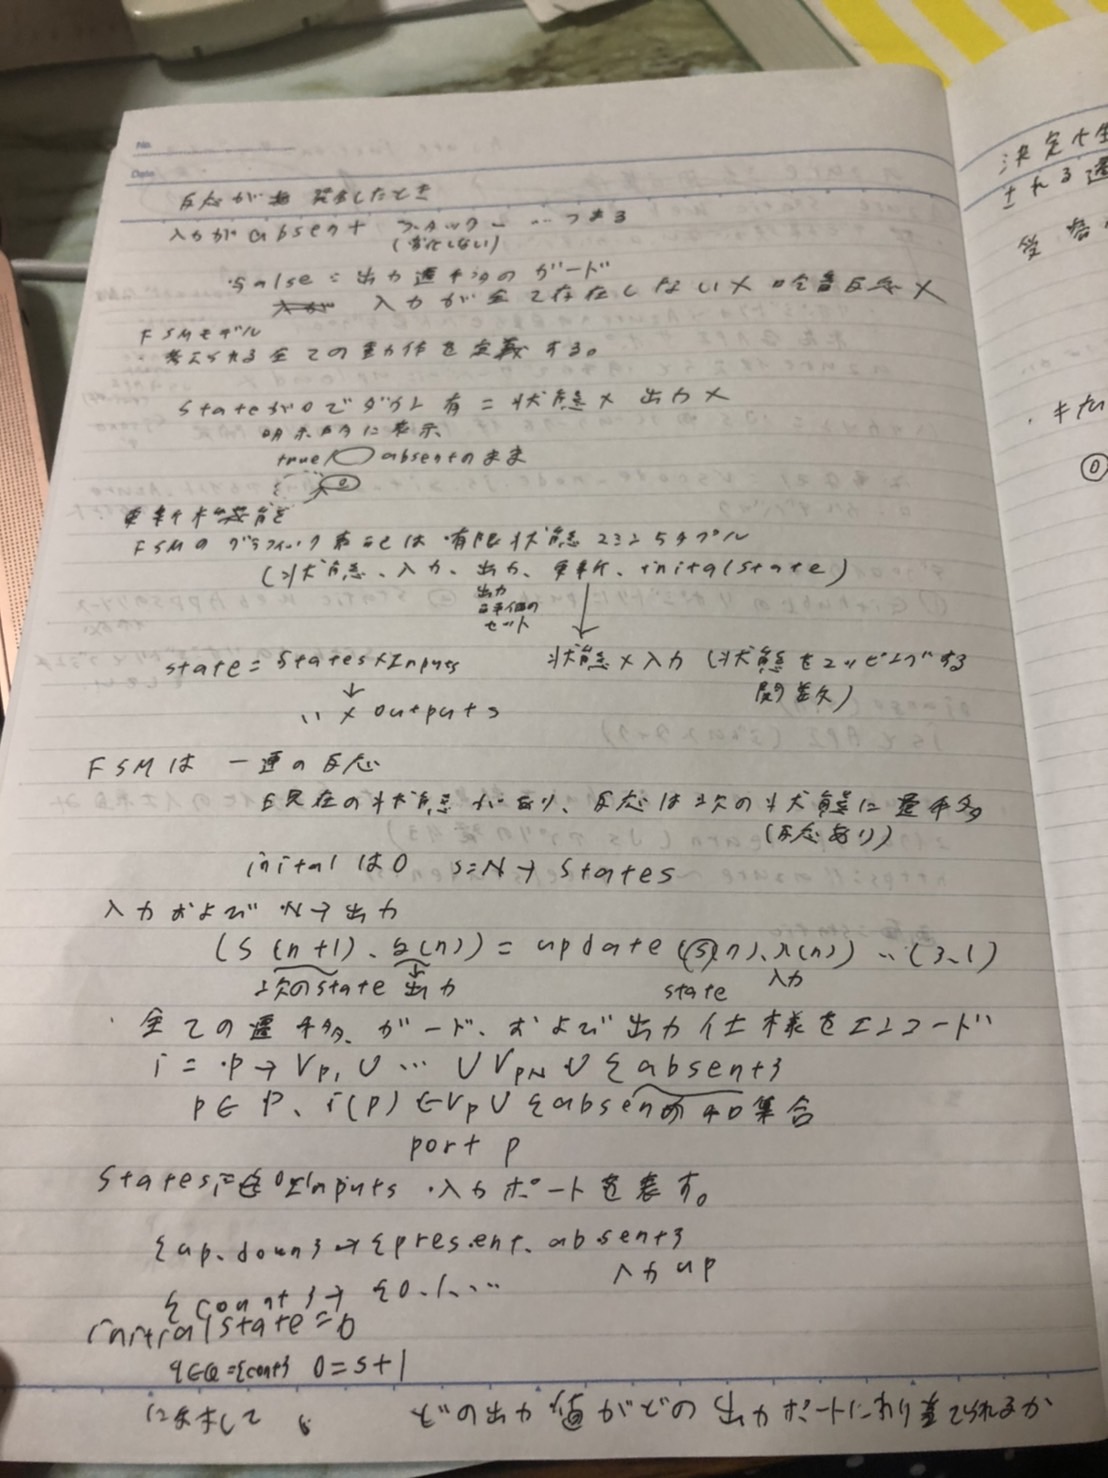 No.
Date
反応が発生したとき
入力がabsent スタック ‥ つまる
(変化しない)
false = 出力遷移のガード
入力が全て存在しない× 吃音反応×
FSMモデル
考えられる全ての動作を定義する。
stateが0で 有 = 状態× 出力×
明示的に表示
true/ absentのまま
更新機能
FSMのグラフィック表記は有限状態 5タプル
(状態、入力、出力、更新、initalState)
出力
のセット
state = States×Inputs
↓
〃 × outputs
状態×入力 (状態をマッピングする
関数)
FSMは 一連の反応
現在の状態があり、反応は次の状態に遷移
(反応あり)
initalは0 s=N→States
入力および N→出力
(S(n+1)、y(n)) = update (s(n)、x(n)) ‥(3.1)
次のstate 出力
state
入力
・全ての遷移、ガード、および出力仕様をエンコード
i = P → Vp1 ∪ … ∪ VpN ∪ {absent}
p∈P、i(p) ∈ Vp ∪ {absent
集合
port p
States Inputs ・入力ポートを表す。
{up.down} → {present.absent}
入力up
{count} → {0.1.…
initialState = 0
q∈Q={count} 0=s+1
どの出力値がどの出力ポートにわり当てられるか
決定性
される遷
受容